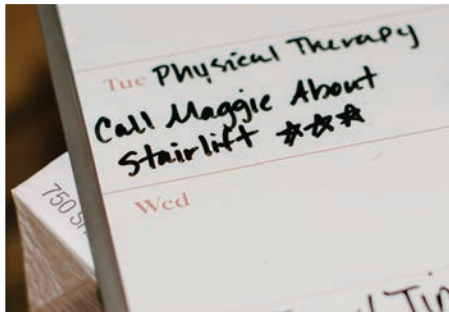 Tue Physical Therapy
Call Maggie About
Stairlift ☆☆☆
Wed
750